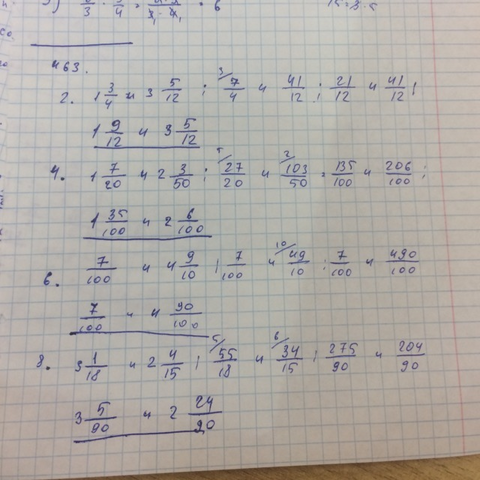 463.
2. 1 3/4 и 3 5/12 ; 7/4 и 41/12 ; 21/12 и 41/12 ;
1 9/12 и 3 5/12
4. 1 7/20 и 2 3/50 ; 27/20 и 103/50 = 135/100 и 206/100 ;
1 35/100 и 2 6/100
6. 7/100 и 4 9/10 ; 7/100 и 49/10 ; 7/100 и 490/100
7/100 и 4 90/100
8. 3 1/18 и 2 4/15 ; 55/18 и 34/15 ; 275/90 и 204/90
3 5/90 и 2 24/90